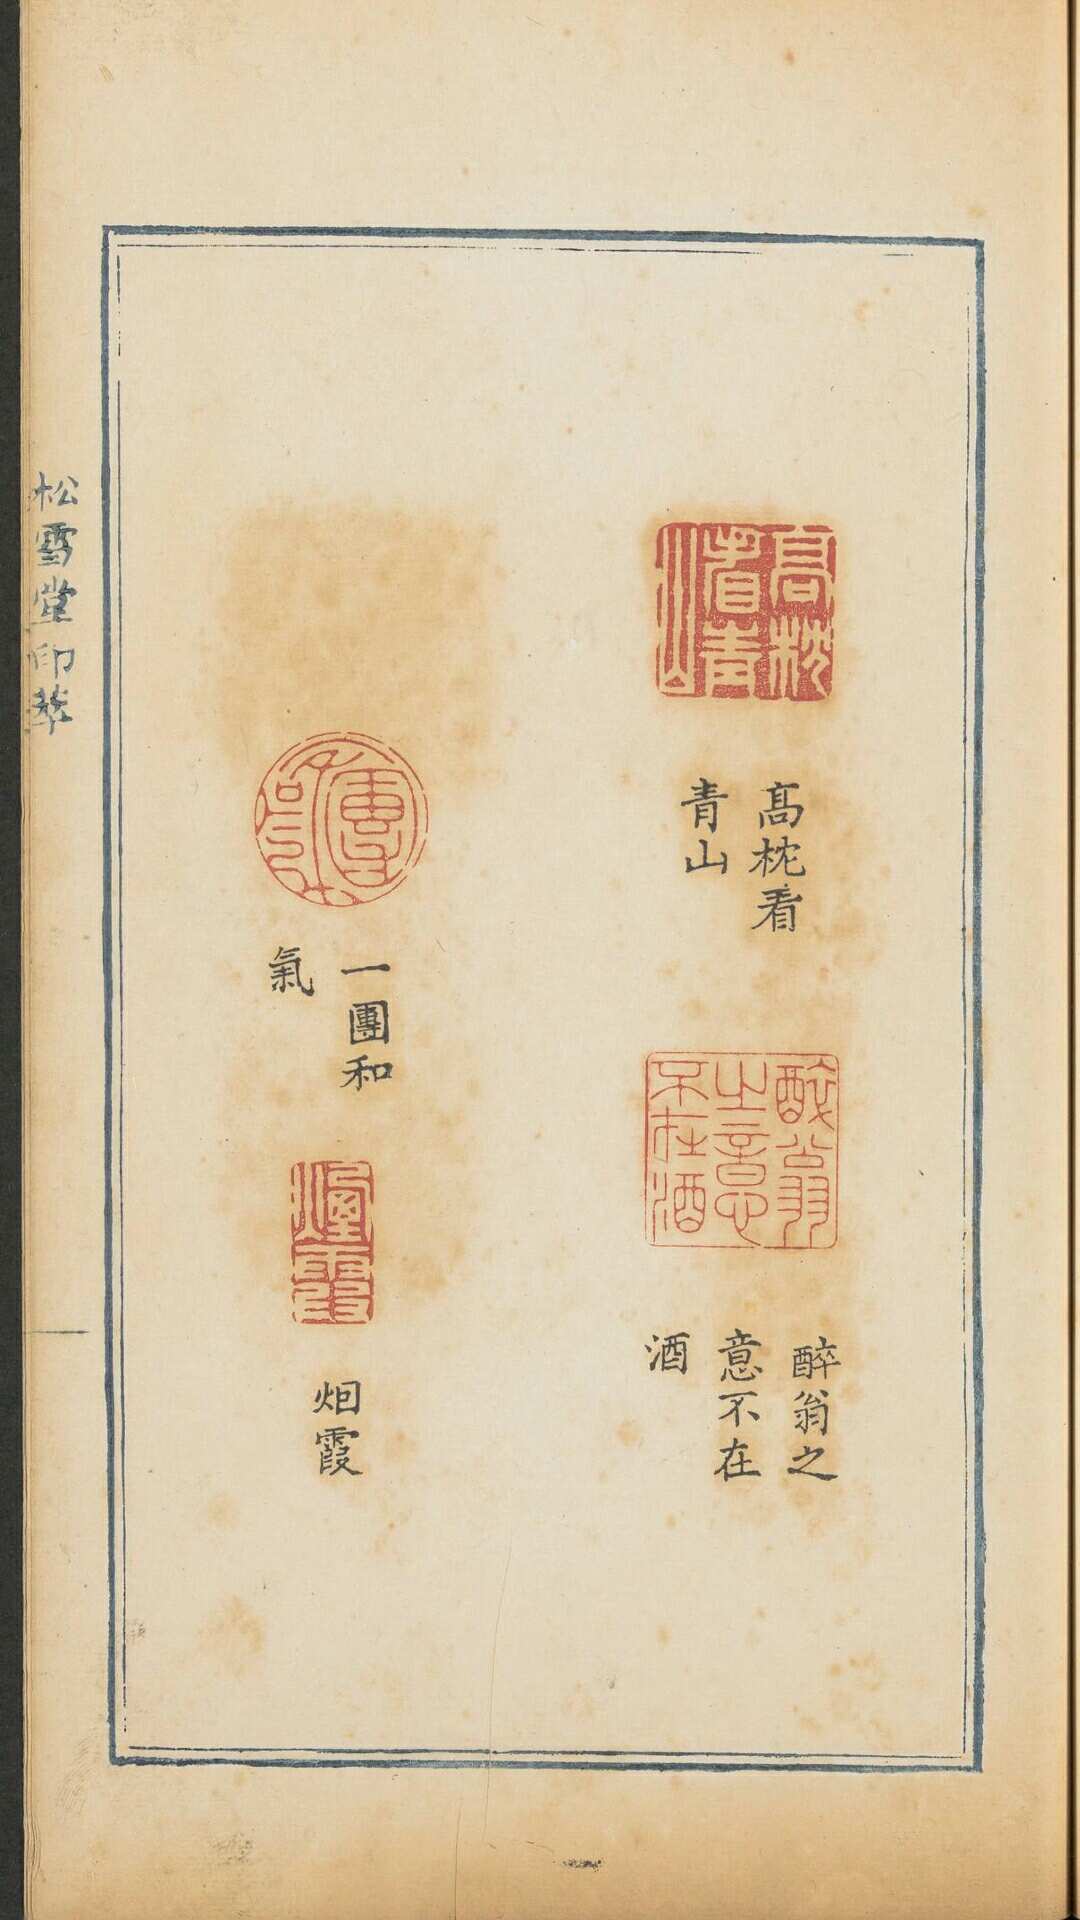 高枕看
青山
高枕看
青山
醉翁
之意
不在酒
醉翁之
意不在
酒
一團和
氣
煙霞
烟霞
松雪堂印萃